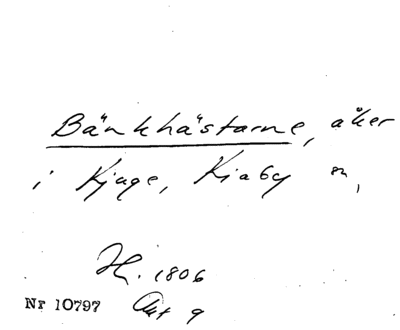 Bänkhästarne, åker
i Kjuge, Kiaby sn,
H. 1806
Nr 10797 Akt 9